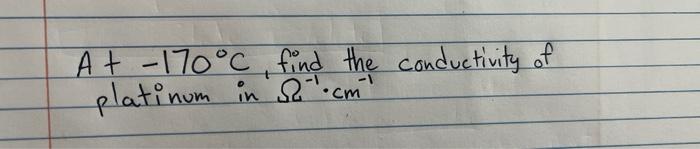 At -170°C, find the conductivity of
platinum in Ω⁻¹·cm⁻¹